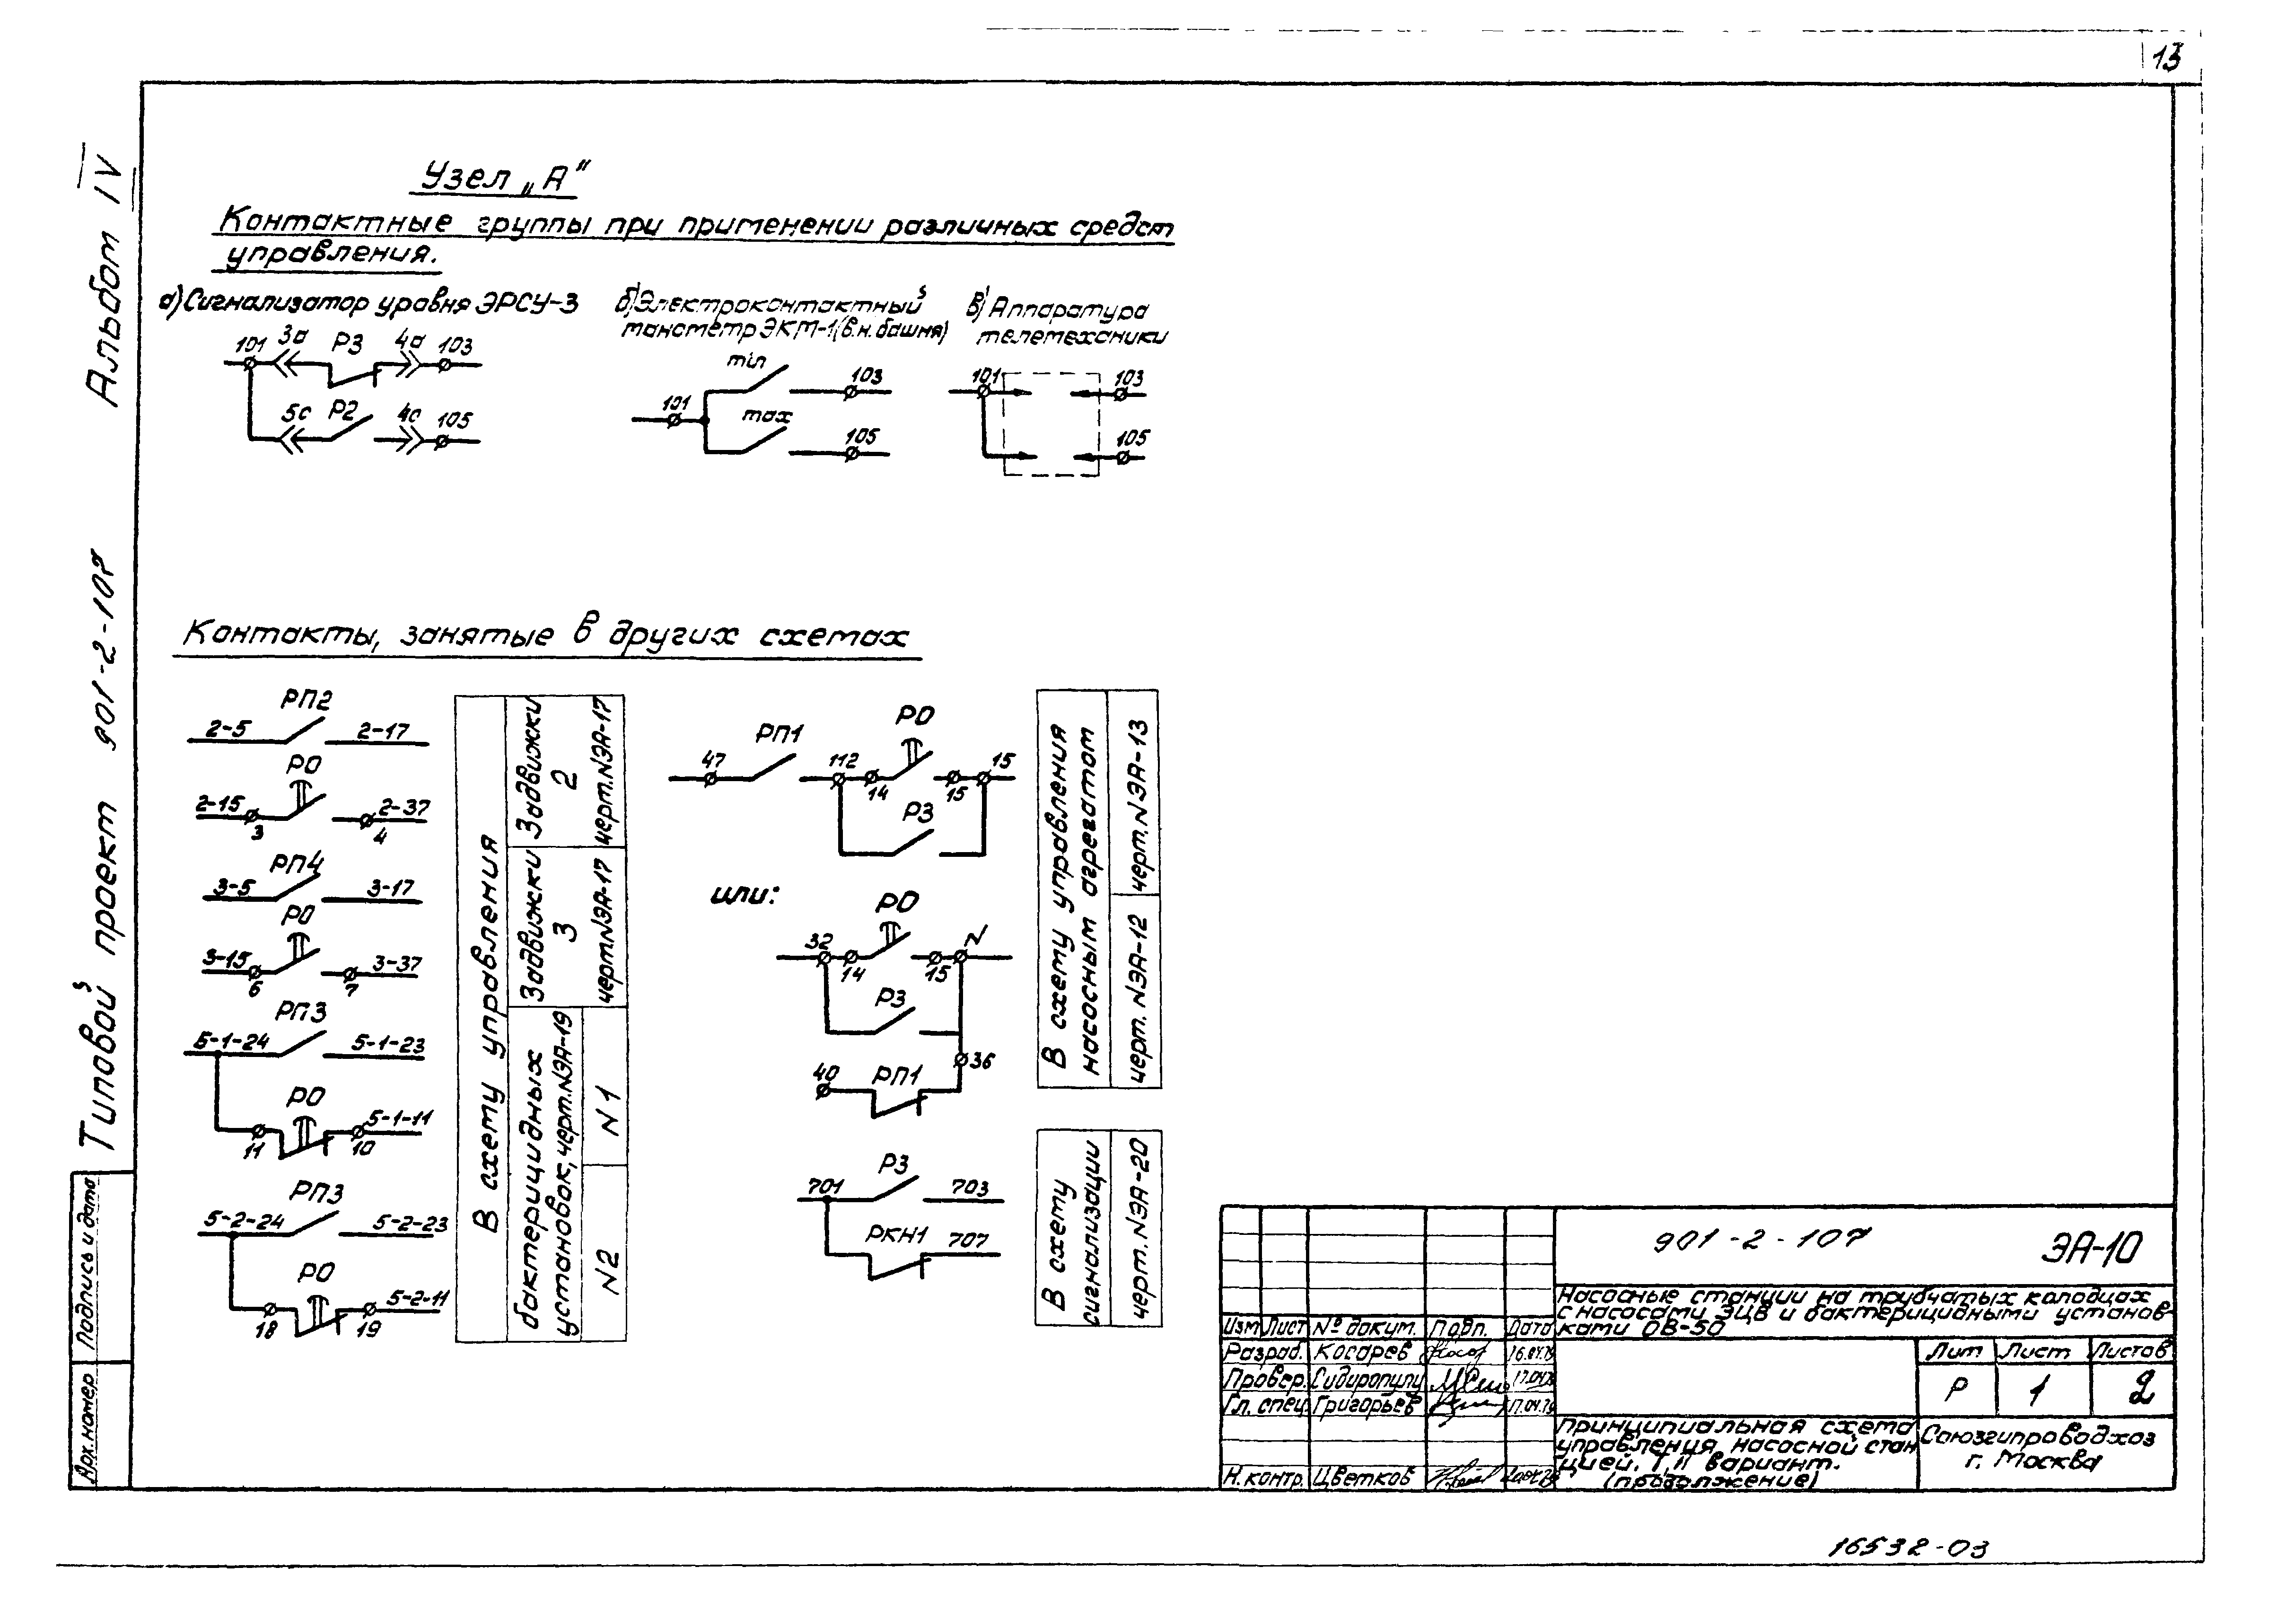 13
Альбом IV
Типовой проект 901-2-107
Подпись и дата
Арх. номер
Узел „А“
Контактные группы при применении различных средст
управления.
а) Сигнализатор уровня ЭРСУ-3
101 3а Р3 4а 103
5с Р2 4с 105
б) Электроконтактный
манометр ЭКМ-1 (в.н. башня)
min
103
101
max
105
в) Аппаратура
телемеханики
101 103
105
Контакты, занятые в других схемах
РП2
2-5 2-17
РО
2-15 2-37
3 4
РП4
3-5 3-17
РО
3-15 3-37
6 7
РП3
5-1-24 5-1-23
РО
5-1-11
11 10
РП3
5-2-24 5-2-23
РО
5-2-11
18 19
В схему управления
Задвижки
2
черт. №ЭА-17
Задвижки
3
черт №ЭА-17
бактерицидных
установок, черт. №ЭА-19
N1
N2
РП1 РО
47 112 15
14 15
Р3
или:
РО
32 N
14 15
Р3
36
40 РП1
В схему управления
насосным агрегатом
черт. №ЭА-12
черт. №ЭА-13
Р3
701 703
РКН1 707
В схему
сигнализации
черт. №ЭА-20
901-2-107 ЭА-10
Насосные станции на трубчатых колодцах
с насосами ЭЦВ и бактерицидными установ-
ками ОВ-50
Изм Лист № докум. Подп. Дата
Разраб. Косарев
Провер. Сидиропулу
Гл. спец. Григорьев
Н. контр. Цветков
Лит Лист Листов
Р 1 2
Принципиальная схема
управления насосной стан
цией. I, II вариант.
(продолжение)
Союзгипроводхоз
г. Москва
16532-03